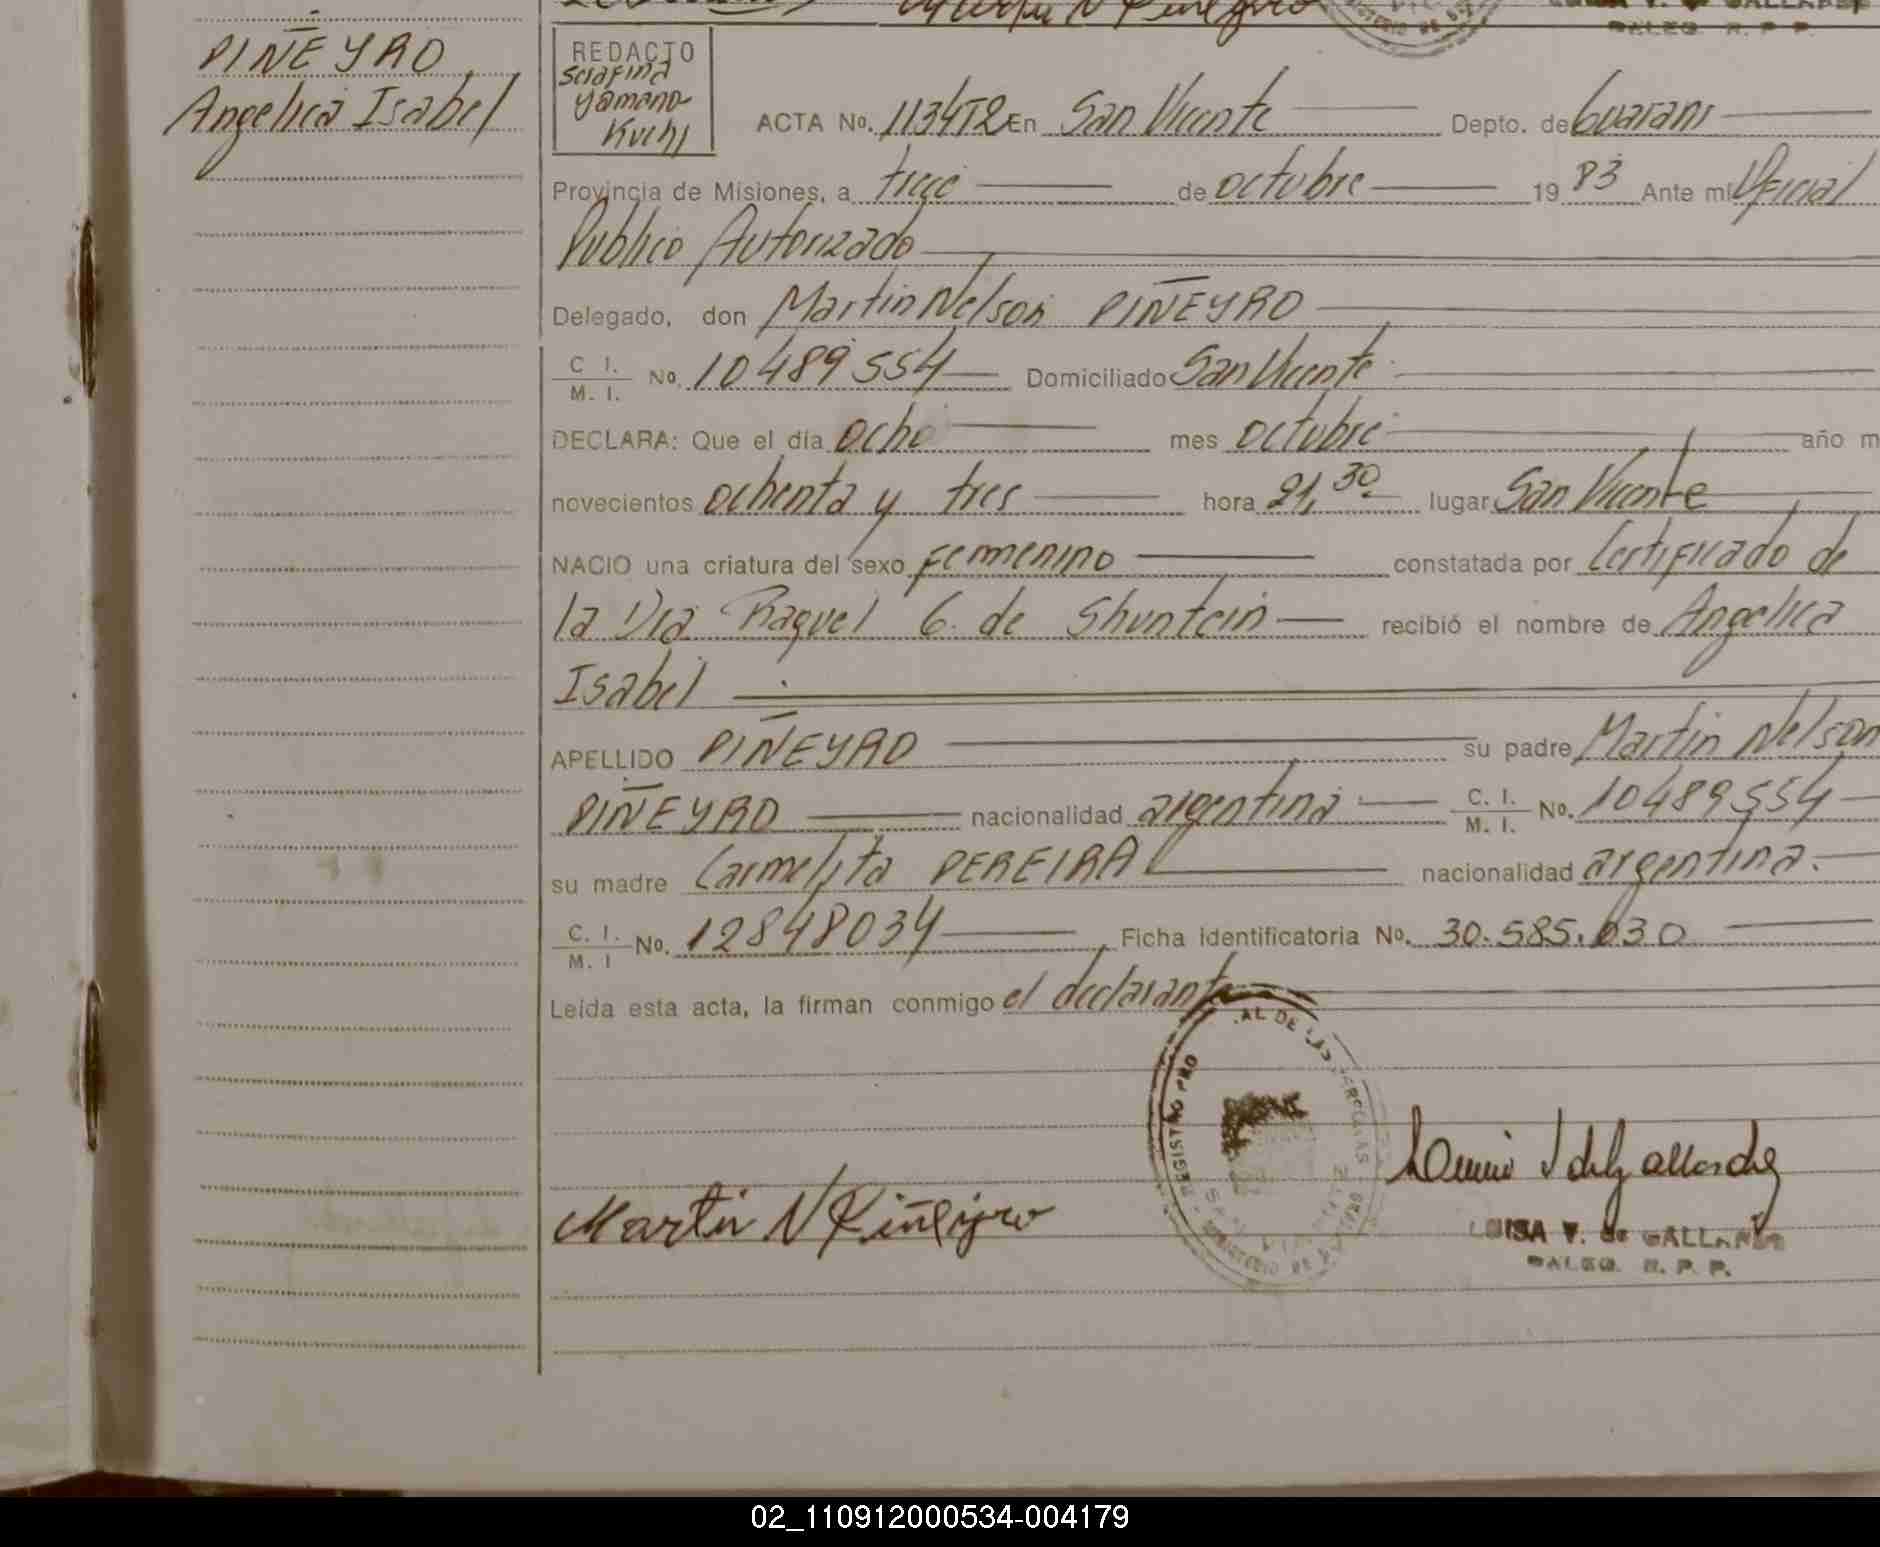 PIÑEYRO
Angelica Isabel
REDACTO
Serafina
Yamona
Kuchl
ACTA No. 1134T2 En San Vicente Depto. de Guarani
Provincia de Misiones, a trece de octubre 19 83 Ante mí Oficial
Publico Autorizado
Delegado, don Martin Nelson PIÑEYRO
C. I. / M. I. No. 10489554 Domiciliado San Vicente
DECLARA: Que el día ocho mes octubre año m
novecientos ochenta y tres hora 21,30 lugar San Vicente
NACIO una criatura del sexo femenino constatada por Certificado de
la Dra Raquel G. de Shuntein recibió el nombre de Angelica
Isabel
APELLIDO PIÑEYRO su padre Martin Nelson
PIÑEYRO nacionalidad argentina C. I. / M. I. No. 10489554
su madre Carmelita PEREIRA nacionalidad argentina.
C. I. / M. I No. 12848034 Ficha identificatoria No. 30.585.030
Leída esta acta, la firman conmigo el declarante
Martin N Piñeyro
LUISA V. de GALLARDO
DALEG. R. P. P.
02_110912000534-004179